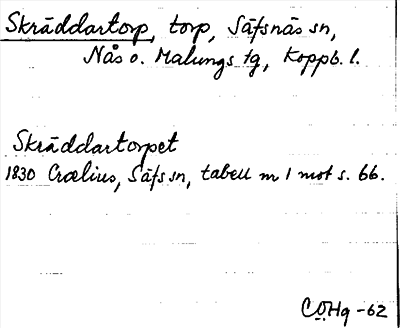 Skräddartorp, torp, Säfsnäs sn,
Nås o. Malungs tg, Koppb. l.
Skräddartorpet
1830 Crælius, Säfs sn, tabell nr 1 mot s. 66.
COHg -62